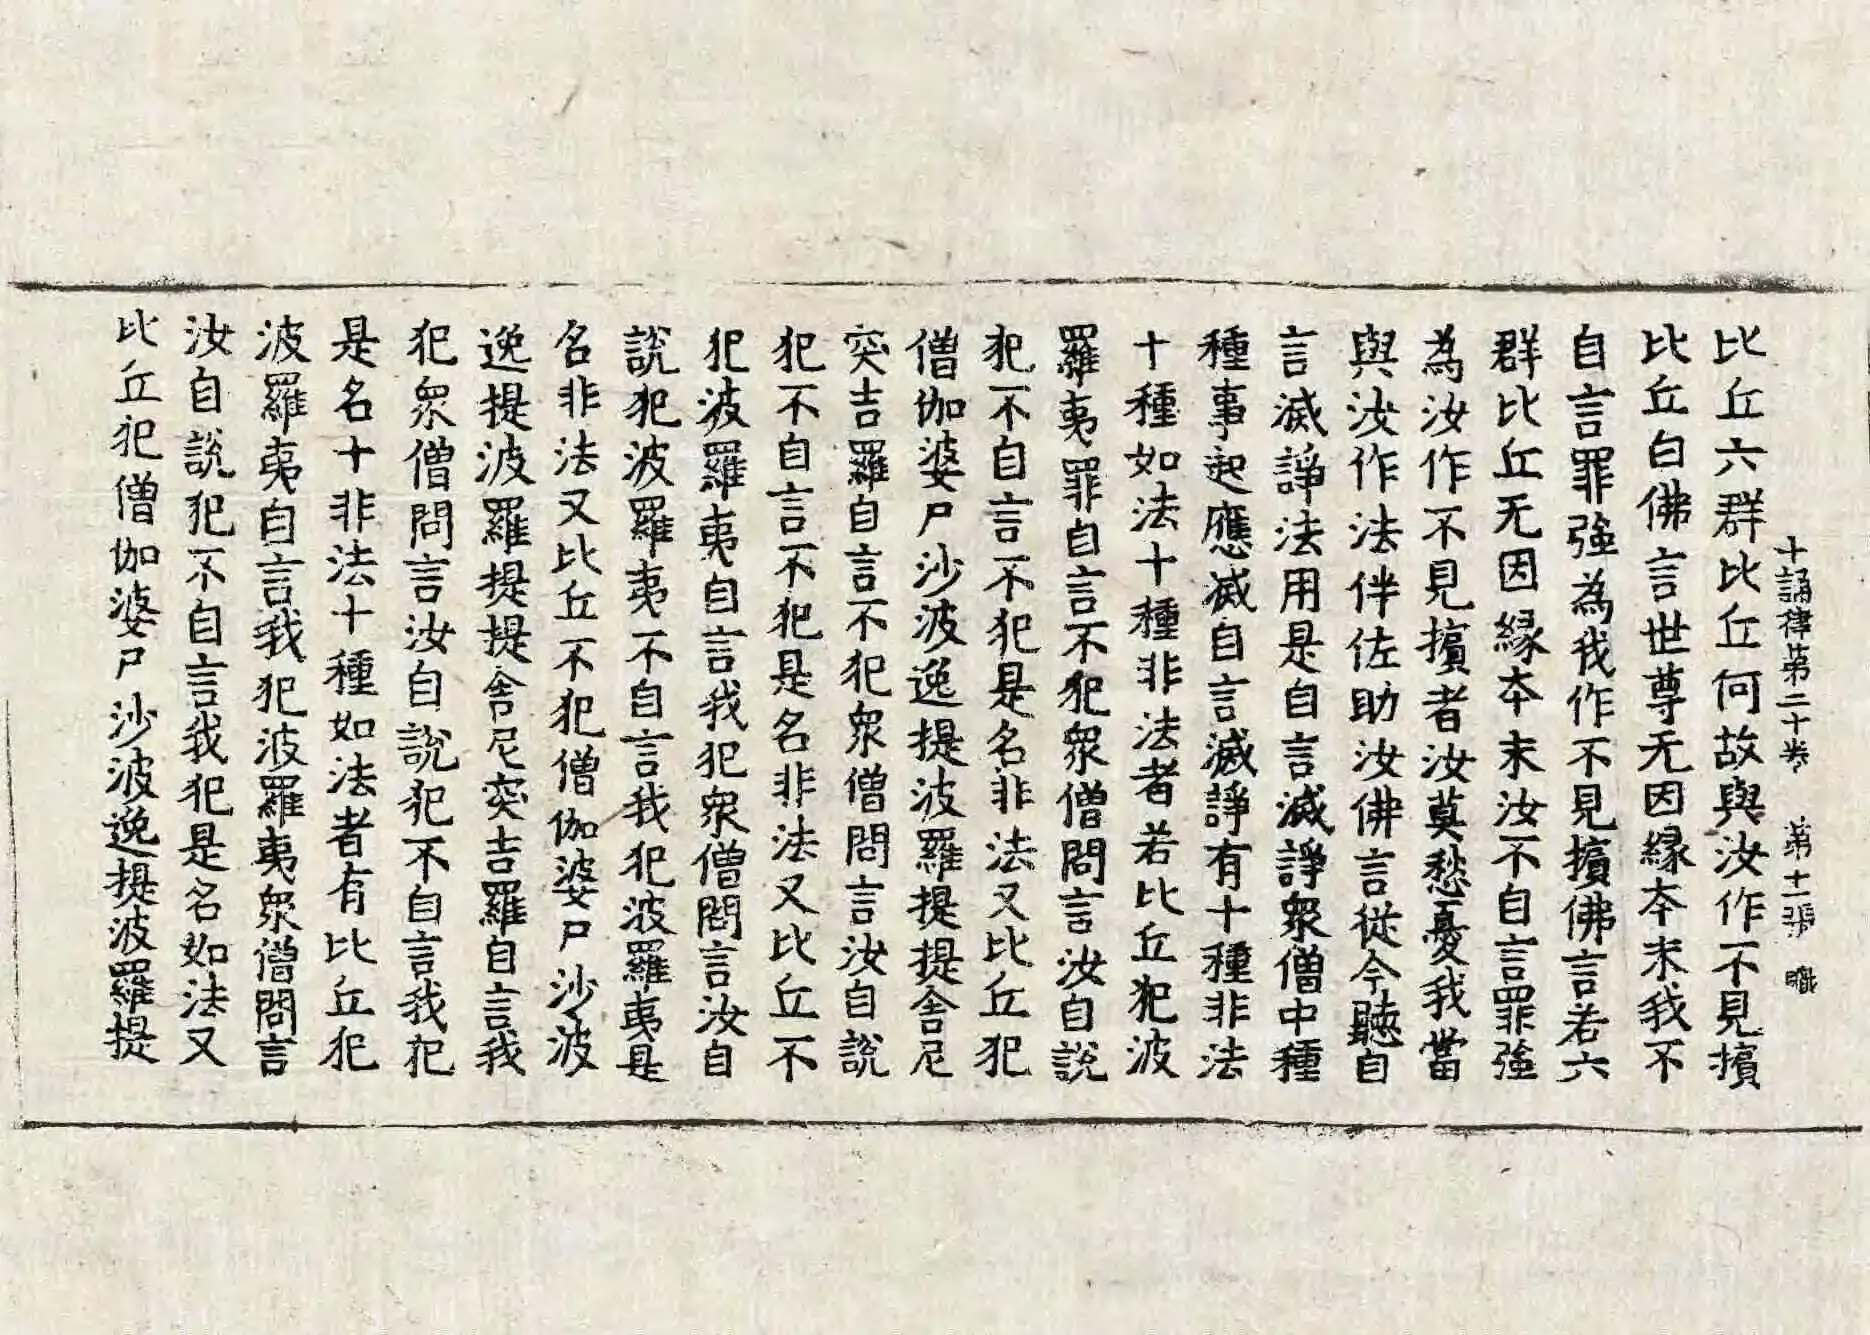 十誦律第二十卷　第十二張　職
比丘六群比丘何故與汝作不見擯
比丘白佛言世尊无因緣本末我不
自言罪強為我作不見擯佛言若六
群比丘无因緣本末汝不自言罪強
為汝作不見擯者汝莫愁憂我當
與汝作法伴佐助汝佛言從今聽自
言滅諍法用是自言滅諍眾僧中種
種事起應滅自言滅諍有十種非法
十種如法十種非法者若比丘犯波
羅夷罪自言不犯眾僧問言汝自說
犯不自言不犯是名非法又比丘犯
僧伽婆尸沙波逸提波羅提提舍尼
突吉羅自言不犯眾僧問言汝自說
犯不自言不犯是名非法又比丘不
犯波羅夷自言我犯眾僧問言汝自
說犯波羅夷不自言我犯波羅夷是
名非法又比丘不犯僧伽婆尸沙波
逸提波羅提提舍尼突吉羅自言我
犯眾僧問言汝自說犯不自言我犯
是名十非法十種如法者有比丘犯
波羅夷自言我犯波羅夷眾僧問言
汝自說犯不自言我犯是名如法又
比丘犯僧伽婆尸沙波逸提波羅提